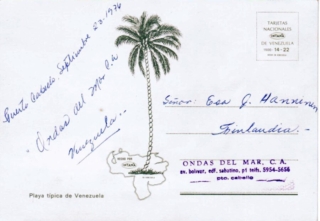 Puerto Cabello Septiembre 23-1976
"Ondas del Mar C.A
Venezuela..
TARJETAS
NACIONALES
DE VENEZUELA
14-22
Señor: Esa G. Hanninen
Fenlandia.-
ONDAS DEL MAR, C. A.
av. bolivar, edf. sabatino, pl telfs. 5954-5656
pto. cabello
Playa típica de Venezuela